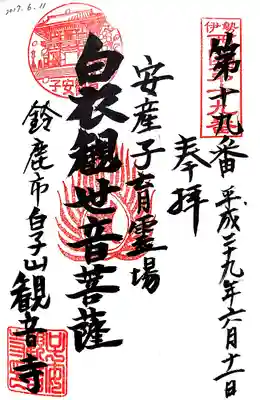 2017.6.11
第十九番
平成二十九年六月十一日
奉拝
安産子育霊場
白衣観世音菩薩
鈴鹿市白子山観音寺